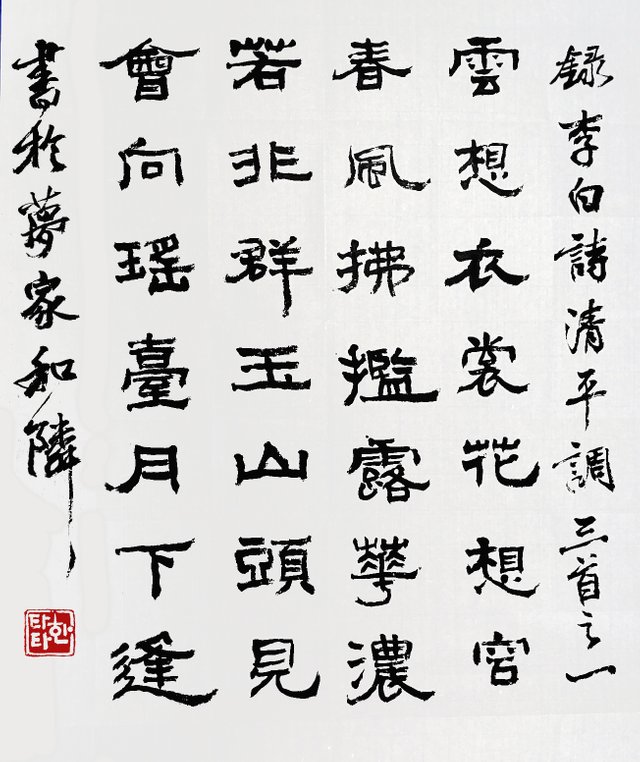 錄李白詩清平調三首之一
雲想衣裳花想容
春風拂檻露華濃
若非群玉山頭見
會向瑤臺月下逢
書於夢家和隣